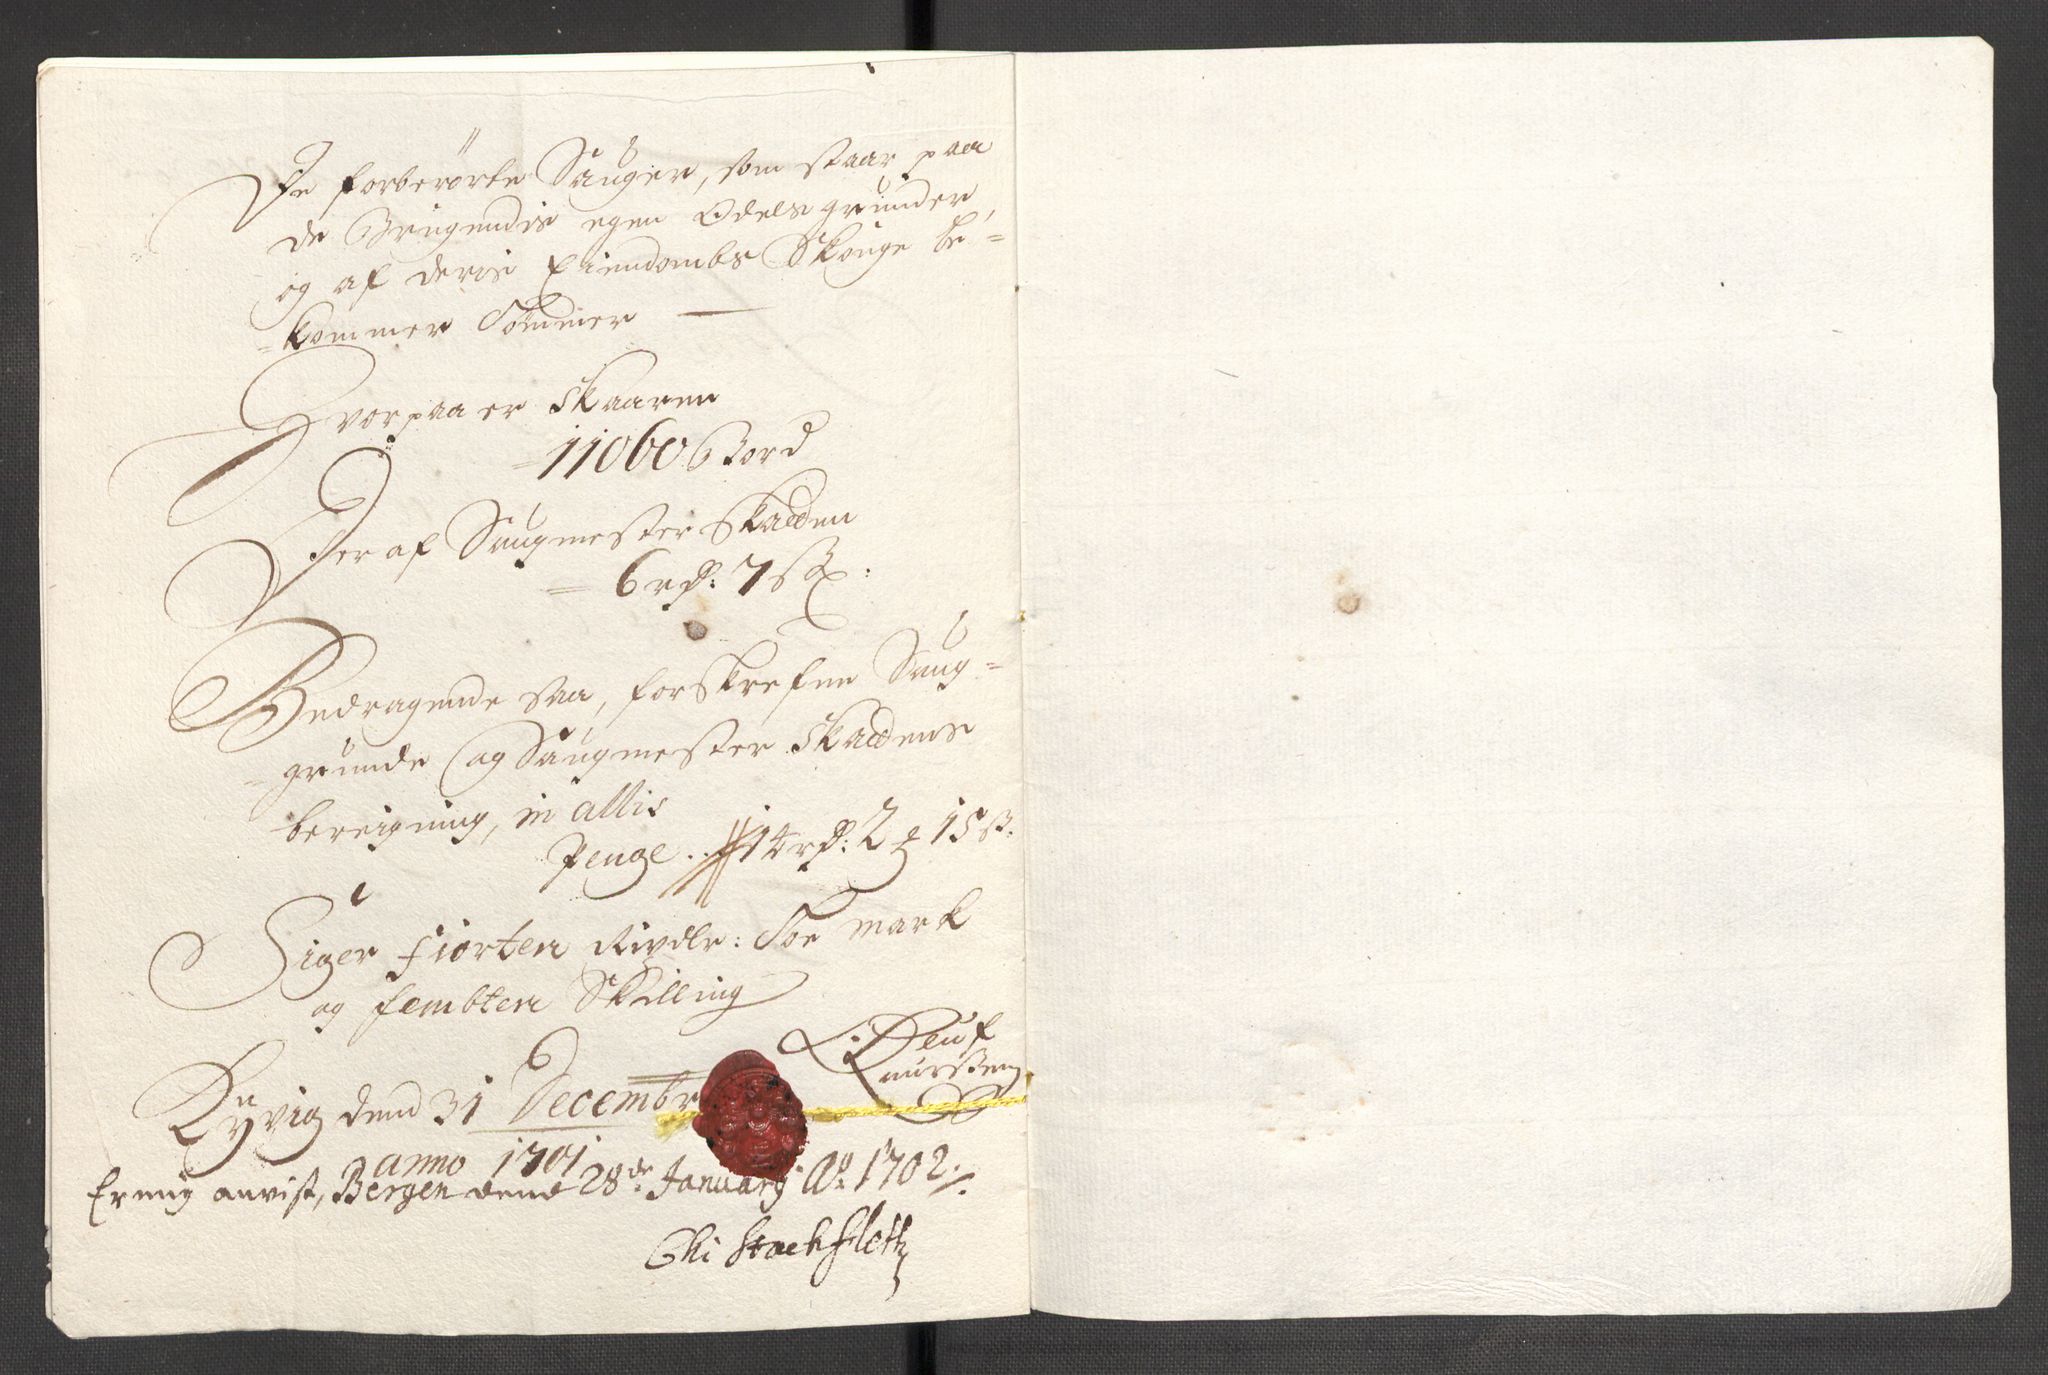 De forberørte Sauger, som staar paa
de Brugendis egen Odels grunder,
og af deris Eiendombs Skouge be=
=kommer Tømmer
Hvorpaa er skaaren
11060 Bord
Deraf Saugmester Skatten
6 rdr: 7 s:
Bedragende saa, forskrefne Saug=
=grunde og Saugmester Skattens
bereigning, in allis
Penge .. 14 rdr: 2 15 s:
Siger fiorten Rixdlr: Toe mark
og fembten Skilling
Ryvig dend 31 Decembr
anno 1701
Knudsen
Er mig anvist, Bergen dend 28de January Ao: 1702
Chr Stockfleth